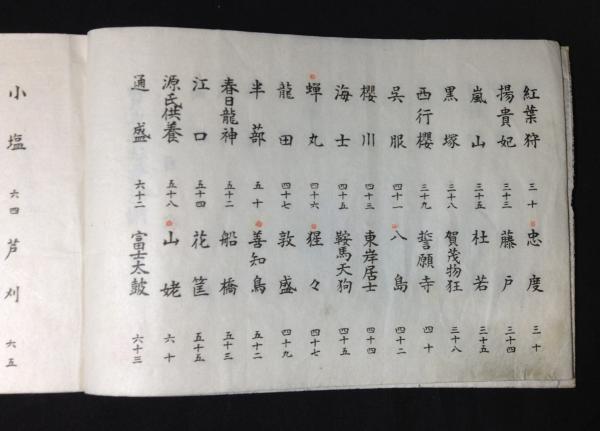 紅葉狩 三十 忠度 三十
揚貴妃 三十三 藤戸 三十四
嵐山 三十五 杜若 三十五
黒塚 三十八 賀茂物狂 三十八
西行櫻 三十九 誓願寺 四十
呉服 四十一 八島 四十二
櫻川 四十三 東岸居士 四十四
海士 四十五 鞍馬天狗 四十五
蝉丸 四十六 猩々 四十七
龍田 四十七 敦盛 四十九
半蔀 五十 善知鳥 五十二
春日龍神 五十二 船橋 五十三
江口 五十四 花筐 五十五
源氏供養 五十八 山姥 六十
通盛 六十二 富士太鼓 六十三
小塩 六四 芦刈 六五